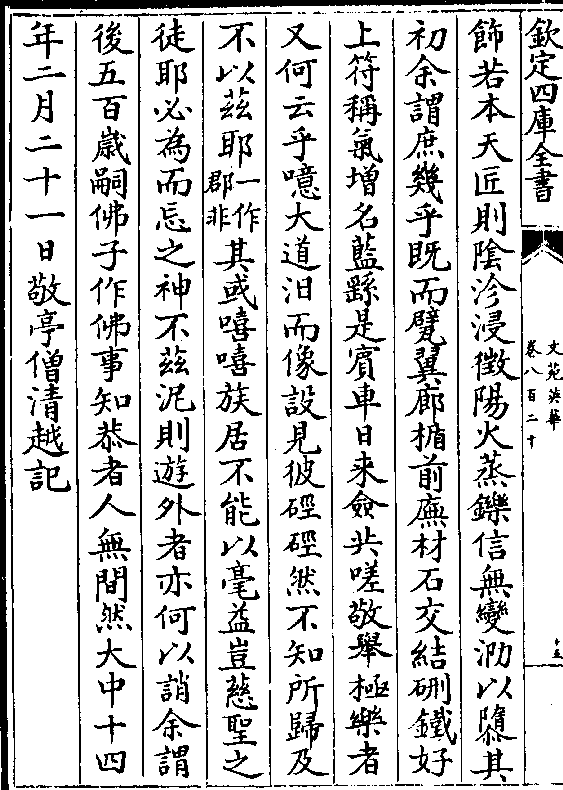 欽定四庫全書
文苑英華
卷八百二十
十五
飾若本天匠則陰沴浸徴陽火蒸鑠信無變泐以隳其
初余謂庶幾乎既而甓翼廊楯前廡材石交結硎鐵好
上符稱氣增名藍繇是賓車日来僉共嗟敬舉極樂者
又何云乎噫大道汨而像設見彼硜硜然不知所歸及
不以兹耶一作郡非其或嘻嘻族居不能以毫益豈慈聖之
徒耶必為而忘之神不兹泥則遊外者亦何以誚余謂
後五百歳嗣佛子作佛事知恭者人無間然大中十四
年二月二十一日敬亭僧清越記